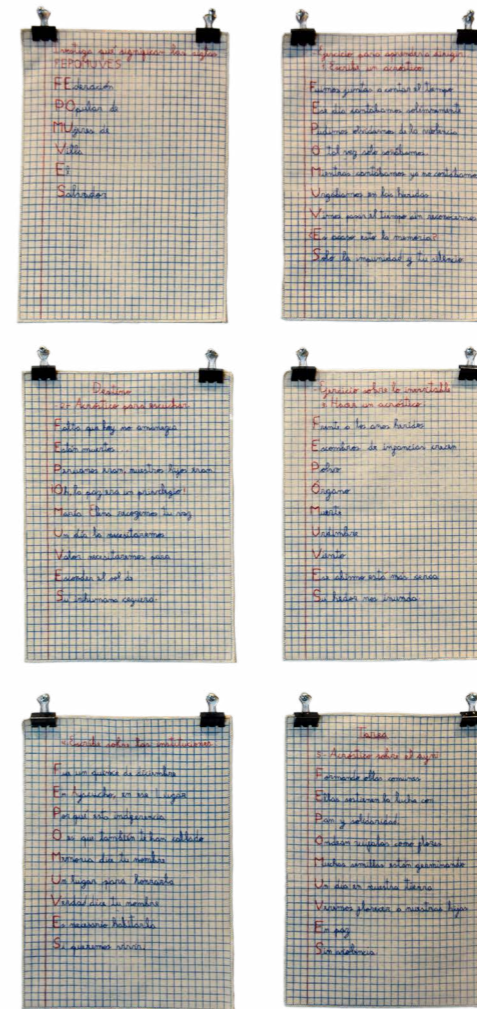 Investiga qué significan las siglas
FEPOMUVES
FEderación
POpular de
MUjeres de
Villa
El
Salvador
Ejercicio para aprender a
Escribir un acróstico
Fuimos juntas a contar el tiempo
Ese día cantábamos solemnemente
Pudimos olvidarnos de la violencia
O tal vez solo soñamos.
Mientras contábamos ya no contábamos
Urgábamos en las heridas
Vimos pasar el tiempo sin reconocernos
¿Es acaso esto la memoria?
Solo la impunidad y tu silencio
Destino
2- Acróstico para escuchar
Falta que hoy no amanezca
Están muertos
Peruanos eran nuestros hijos eran
¡Oh la paz era un privilegio!
María Elena recogemos tu voz
Un día la necesitaremos
Valor necesitaremos para
Esconder el sol de
Su inhumana ceguera.
Ejercicio sobre lo inevitable
Hacer un acróstico
Frente a los aros heridos
Escombros de infancias crecen
Polvo
Órgano
Muerte
Urdimbre
Viento
Ese último está más cerca
Su hedor nos inunda
Escribe sobre las instituciones
Fue un quince de diciembre
En Ayacucho, en ese Lugar
Por qué esta indiferencia
O es que también te han callado
Memoria dice tu nombre
Un lugar para honrarla
Verdad dice tu nombre
Es necesario habitarla
Si queremos vivir.
Tarea
5- Acróstico sobre el
Formando ollas comunes
Ellas sostienen la lucha con
Pan y solidaridad
Ondean wiphalas como flores
Muchas semillas están germinando
Un día en nuestra tierra
Veremos florecer a nuestras hijas
En paz
Sin violencia